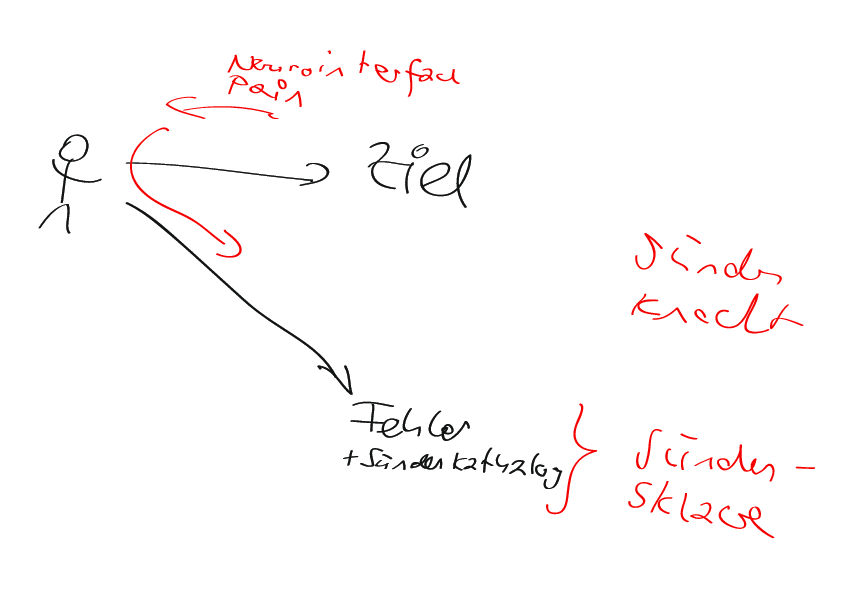 Neurointerface
Pain
Ziel
Sünden
Knecht
Fehler
+ Sündenkathalog
Sünden-
Sklave